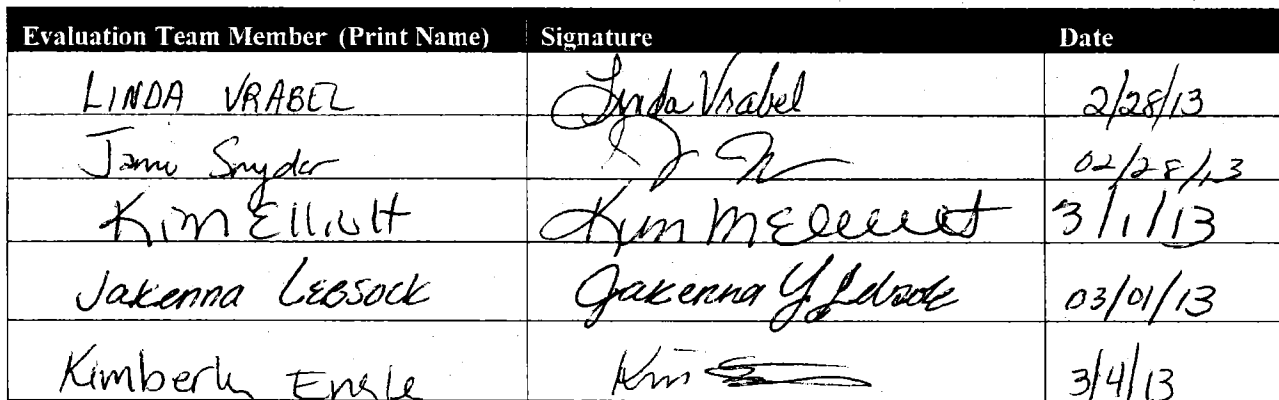 Evaluation Team Member (Print Name) Signature Date
LINDA VRABEL Lynda Vrabel 2/28/13
Jami Snyder 02/28/13
Kim Elliott Kim M Elliott 3/1/13
Jakenna Lebsock Jakenna Y Lebsock 03/01/13
Kimberly Engle Kim 3/4/13